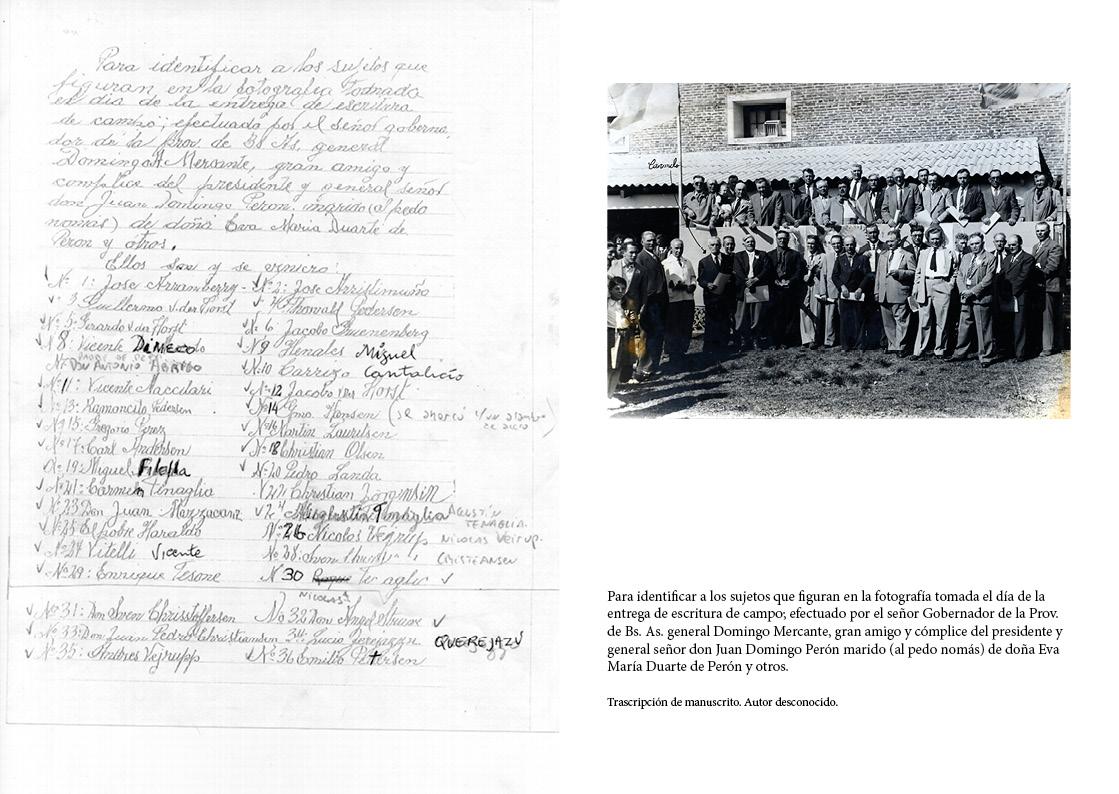 Para identificar a los sujetos que
figuran en la fotografia tomada
el dia de la entrega de escritura
de campo; efectuado por el señor goberna,
dor de la prov. de Bs As. general
Domingo A. Mercante, gran amigo y
complice del presidente y general señor
don Juan Domingo Peron. marido (al pedo
nomas) de doña Eva Maria Duarte de
Peron y otros.
Ellos son y se
Nº 1: Jose Arramberry - Nº 2: Jose Arristimuño
Nº 3 Guillermo v.der Horst Nº 4 Thorvald Pedersen
Nº 5: Gerardo v.der Horst Nº 6 Jacobo Gruenenberg
Nº 8: Vicente DiMECO Nº 9 Henales Miguel
Nº DON ANTONIO Nº 10 Carrizo Cantalicio
Nº 11: Vicente Maccilari Nº 12 Jacobo ver Horst
Nº 13: Ramoncito Pedersen Nº 14 Gmo. Hensen (se ahorcó
Nº 15: Gregorio Perez Nº 16 Martin Lauritsen
Nº 17: Carl Anderson Nº 18 Christian Olsen
Nº 19: Miguel Filella Nº 20 Pedro Landa
Nº 21: Carmelo Tinaglia Nº 22 Christian
Nº 23 Don Juan Mazzacane Nº 24 Augustin Tinaglia AGUSTÍN
TENAGLIA.
Nº 25 El pobre Haraldo Nº 26 Nicolas Vejrup NICOLAS VEIRUP.
Nº 27 Vitelli Vicente Nº 28: Sven CRISTEANSEN
Nº 29: Enrrique Tesone Nº 30 Tenaglia
NICOLAS
Nº 31: Don Sven Christoffersen Nº 32 Don Angel
Nº 33: Don Juan Pedro Christiansen 34: Lucio QUEREJAZU
Nº 35: Andres Vejrupp Nº 36 Emilio Petersen
Carmelo
Para identificar a los sujetos que figuran en la fotografía tomada el día de la
entrega de escritura de campo, efectuado por el señor Gobernador de la Prov.
de Bs. As. general Domingo Mercante, gran amigo y cómplice del presidente y
general señor don Juan Domingo Perón marido (al pedo nomás) de doña Eva
María Duarte de Perón y otros.
Trascripción de manuscrito. Autor desconocido.